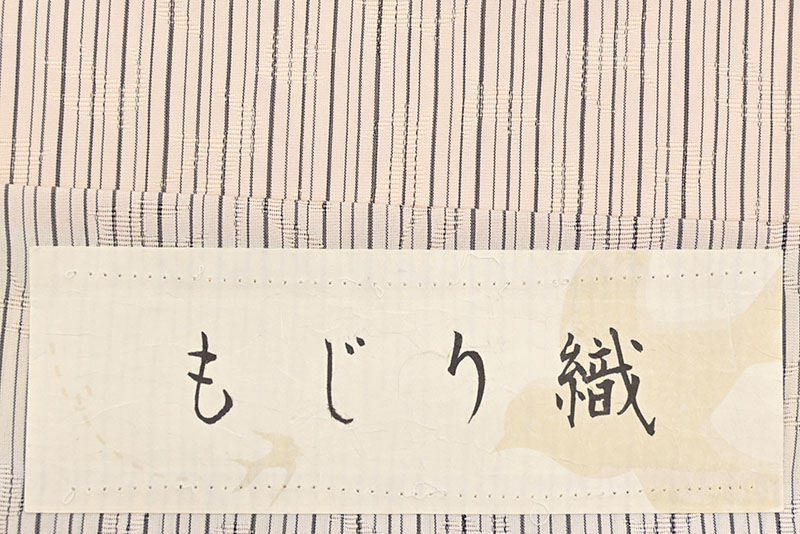 もじり織